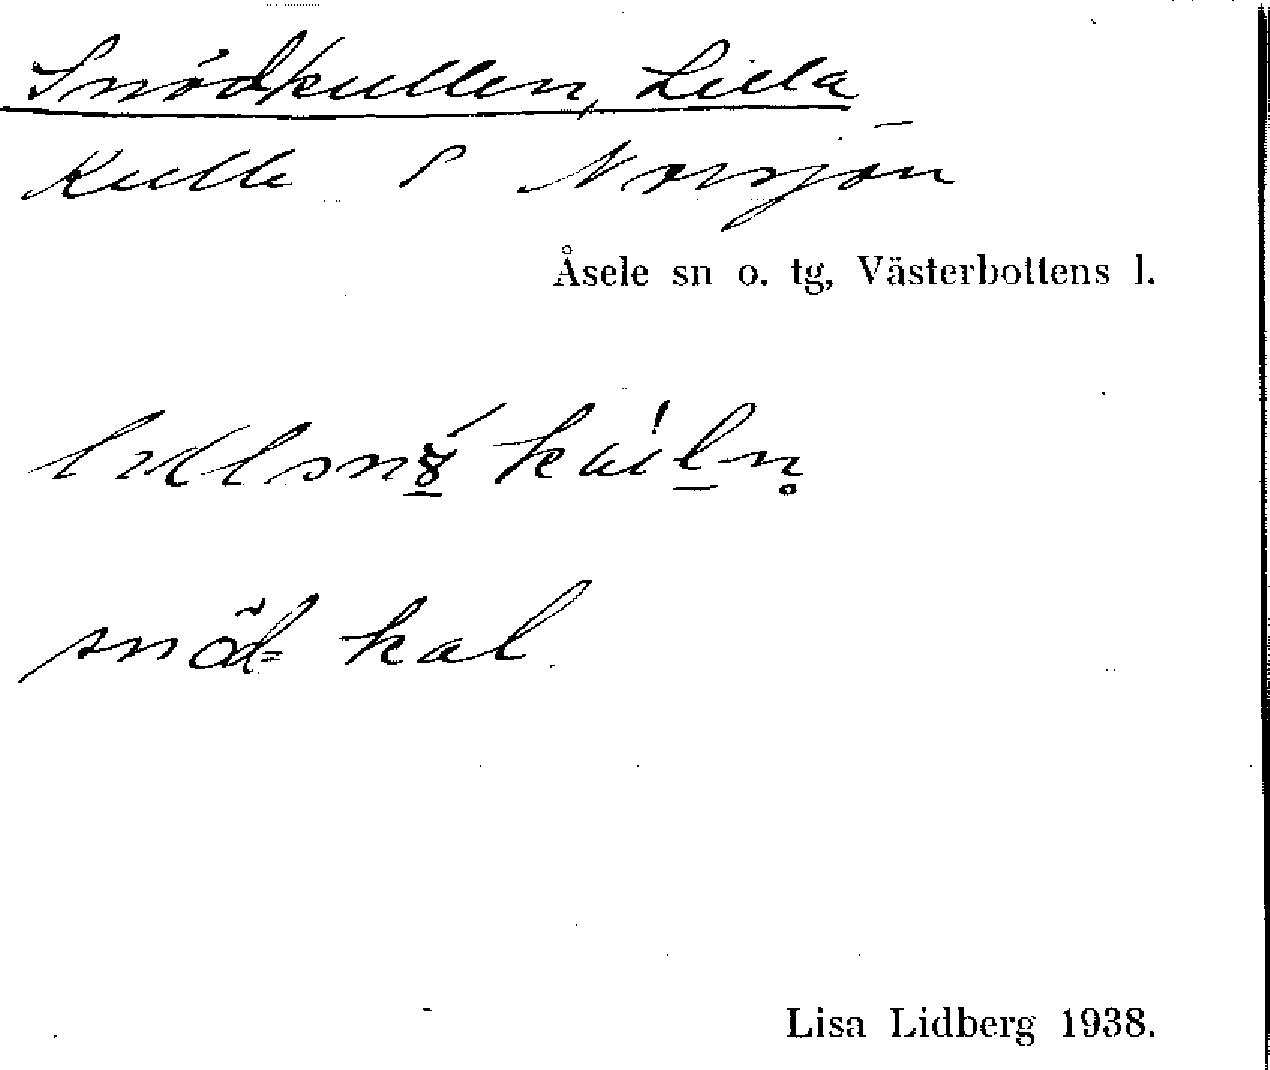 Snödkullen, Lilla
Kulle S Norsjön
Åsele sn o. tg, Västerbottens l.
snöd= kal
Lisa Lidberg 1938.